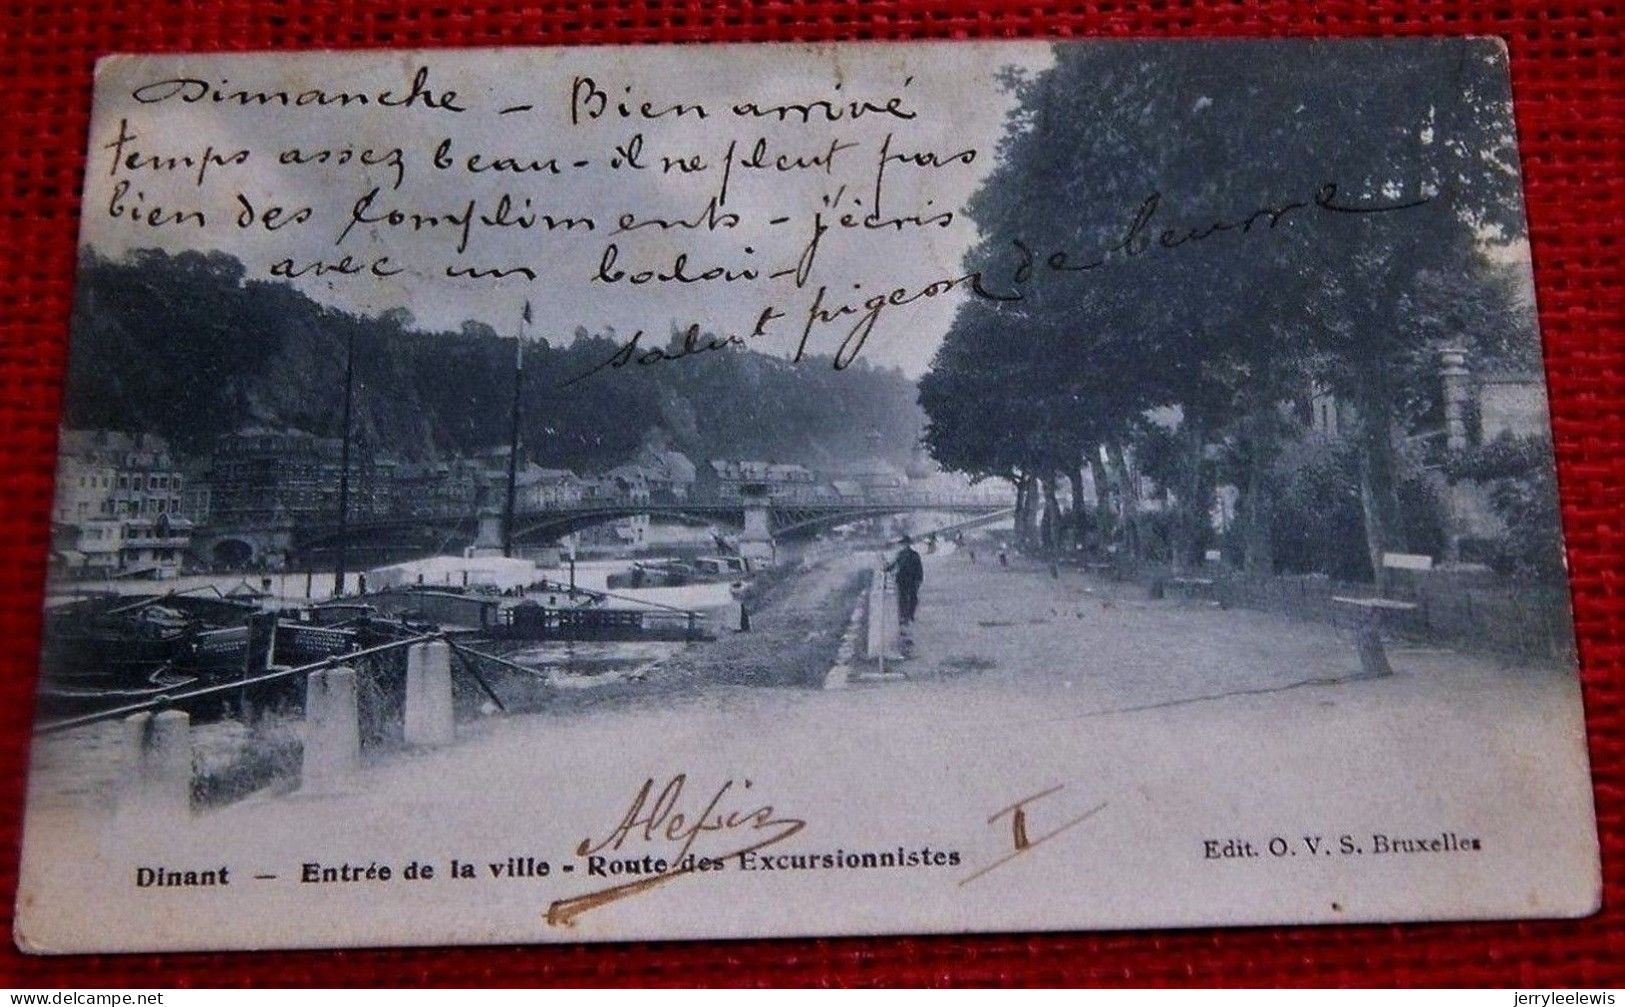 Dimanche - Bien arrivé
temps assez beau - il ne pleut pas
bien des compliments - j'écris
avec un balai -
salut pigeon de beurre
Dinant — Entrée de la ville - Route des Excursionnistes
Edit. O. V. S. Bruxelles
jerryleelewis